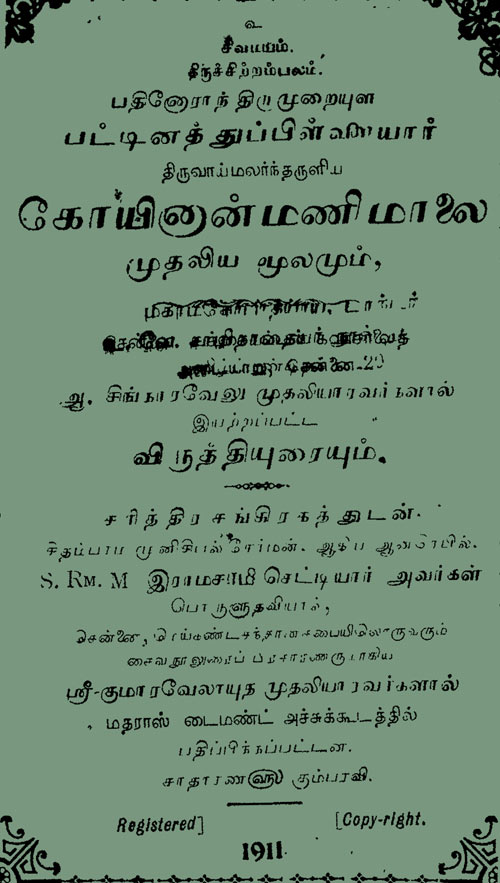 உ
சிவமயம்.
திருச்சிற்றம்பலம்.
பதினோராந் திருமுறையுள
பட்டினத்துப்பிள்ளையார்
திருவாய்மலர்ந்தருளிய
கோயினான்மணிமாலை
முதலிய மூலமும்,
சென்னை,
ஆ. சிங்காரவேலு முதலியாரவர்களால்
இயற்றப்பட்ட
விருத்தியுரையும்.
சரித்திர சங்கிரகத்துடன்.
சிதம்பரம் முனிசிபல் சேர்மன்.
S. RM. M இராமசாமி செட்டியார் அவர்கள்
பொருளுதவியால்,
சென்னை, மெய்கண்டசந்தான சபையிலொருவரும்
சைவநூலுரைப் பிரசாரணருமாகிய
ஸ்ரீ-குமாரவேலாயுத முதலியாரவர்களால்
மதராஸ் டைமண்ட் அச்சுக்கூடத்தில்
பதிப்பிக்கப்பட்டன.
சாதாரண௵ கும்பரவி.
Registered] [Copy-right.
1911